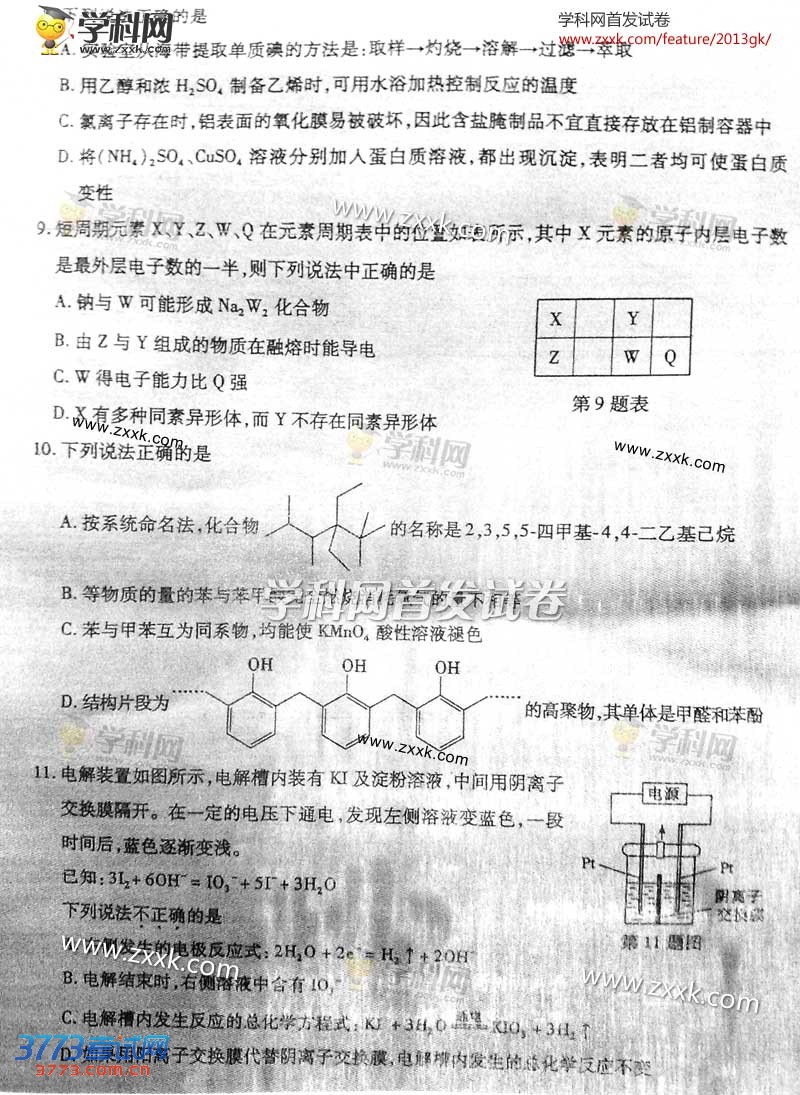 下列说法正确的是
学科网首发试卷
zxxk.com/feature/2013gk/
学科网
zxxk.com
A. 实验室从海带提取单质碘的方法是:取样→灼烧→溶解→过滤→萃取
B. 用乙醇和浓 H₂SO₄ 制备乙烯时,可用水浴加热控制反应的温度
C. 氯离子存在时,铝表面的氧化膜易被破坏,因此含盐腌制品不宜直接存放在铝制容器中
D. 将(NH₄)₂SO₄、CuSO₄ 溶液分别加入蛋白质溶液,都出现沉淀,表明二者均可使蛋白质
变性
www.zxxk.com
9. 短周期元素 X、Y、Z、W、Q 在元素周期表中的位置如表所示,其中 X 元素的原子内层电子数
是最外层电子数的一半,则下列说法中正确的是
A. 钠与 W 可能形成 Na₂W₂ 化合物
B. 由 Z 与 Y 组成的物质在融熔时能导电
C. W 得电子能力比 Q 强
D. X 有多种同素异形体,而 Y 不存在同素异形体
X Y
Z W Q
第 9 题表
www.zxxk.com
学科网
www.zxxk.com
10. 下列说法正确的是
A. 按系统命名法,化合物 的名称是 2,3,5,5-四甲基-4,4-二乙基己烷
B. 等物质的量的苯与苯甲
学科网首发试卷
C. 苯与甲苯互为同系物,均能使 KMnO₄ 酸性溶液褪色
OH OH OH
D. 结构片段为 的高聚物,其单体是甲醛和苯酚
www.zxxk.com
学科网
11. 电解装置如图所示,电解槽内装有 KI 及淀粉溶液,中间用阴离子
交换膜隔开。在一定的电压下通电,发现左侧溶液变蓝色,一段
时间后,蓝色逐渐变浅。
已知:3I₂+6OH⁻=IO₃⁻+5I⁻+3H₂O
下列说法不正确的是
电源
Pt
Pt
阴离子
交换膜
第 11 题图
侧发生的电极反应式:2H₂O+2e⁻=H₂↑+2OH⁻
www.zxxk.com
B. 电解结束时,右侧溶液中含有 IO₃⁻
学科网
www.zxxk.com
C. 电解槽内发生反应的总化学方程式:KI+3H₂O 通电 KIO₃+3H₂↑
D. 如果用阳离子交换膜代替阴离子交换膜,电解槽内发生的总化学反应不变
3773考试网
3773.com.cn